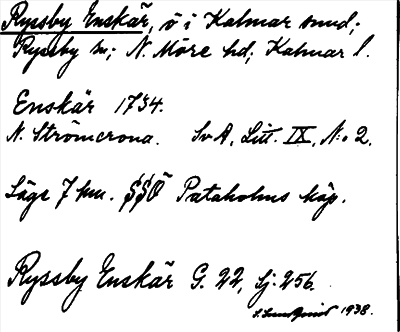 Ryssby Enskär, ö i Kalmar sund;
Ryssby sn; N. Möre hd; Kalmar l.
Enskär 1734.
N. Strömcrona. Sv A, Litt. IX, N:o 2.
Läge 7 km. SSÖ Pataholms köp.
Ryssby Enskär G. 22, Sj. 256.
1938.